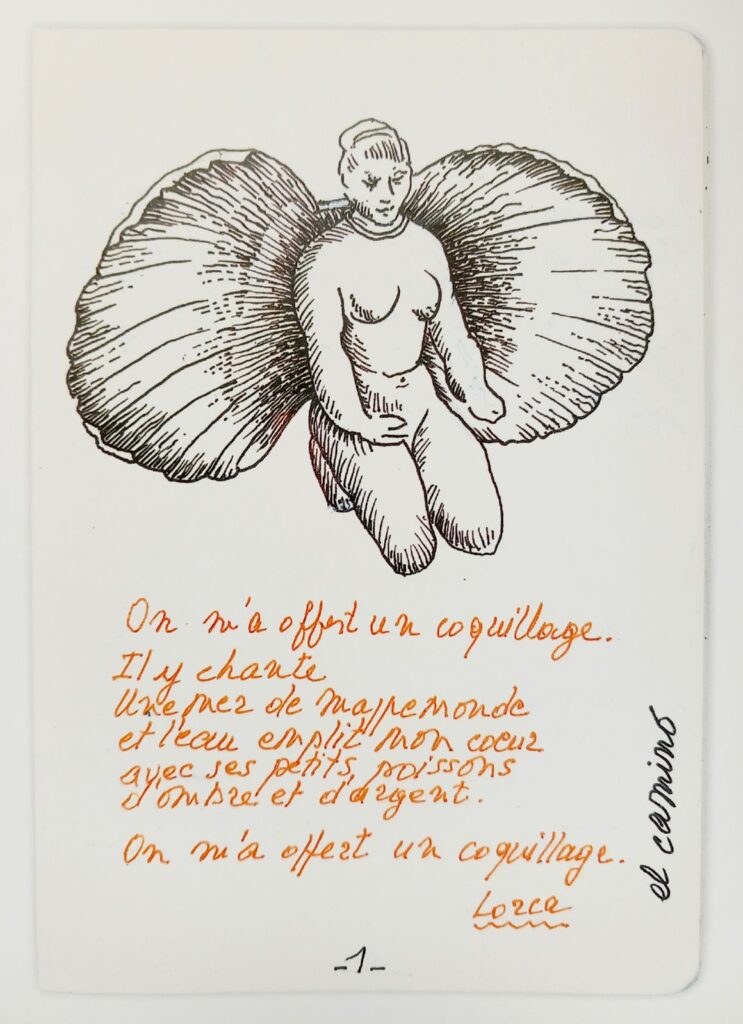 On m'a offert un coquillage.
Il y chante
Une mer de mappemonde
et l'eau emplit mon coeur
avec ses petits poissons
d'ombre et d'argent.
On m'a offert un coquillage.
Lorca
el camino
-1-